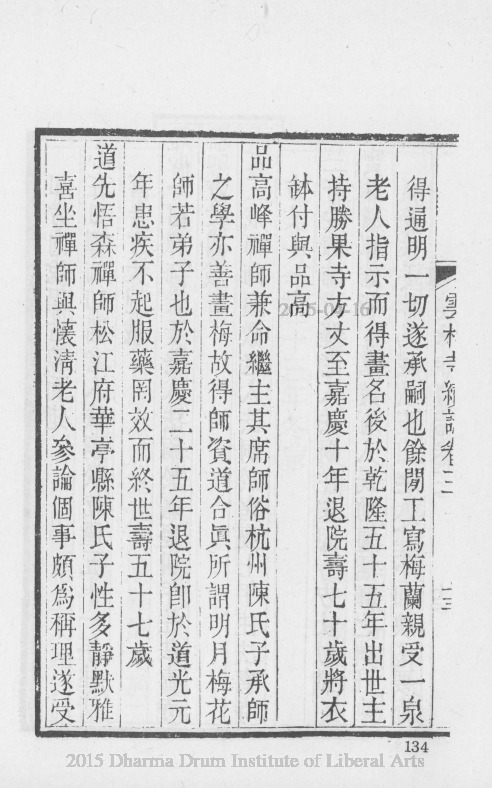 雲林寺續誌卷三
十三
得通明一切遂承嗣也餘閒工寫梅蘭親受一泉
老人指示而得畫名後於乾隆五十五年出世主
持勝果寺方丈至嘉慶十年退院壽七十歲將衣
鉢付與品高
品高峰禪師兼命繼主其席師俗杭州陳氏子承師
之學亦善畫梅故得師資道合眞所謂明月梅花
師若弟子也於嘉慶二十五年退院卽於道光元
年患疾不起服藥罔效而終世壽五十七歲
道先悟森禪師松江府華亭縣陳氏子性多靜默雅
喜坐禪師與懷淸老人參論個事頗爲稱理遂受
134
2015 Dharma Drum Institute of Liberal Arts